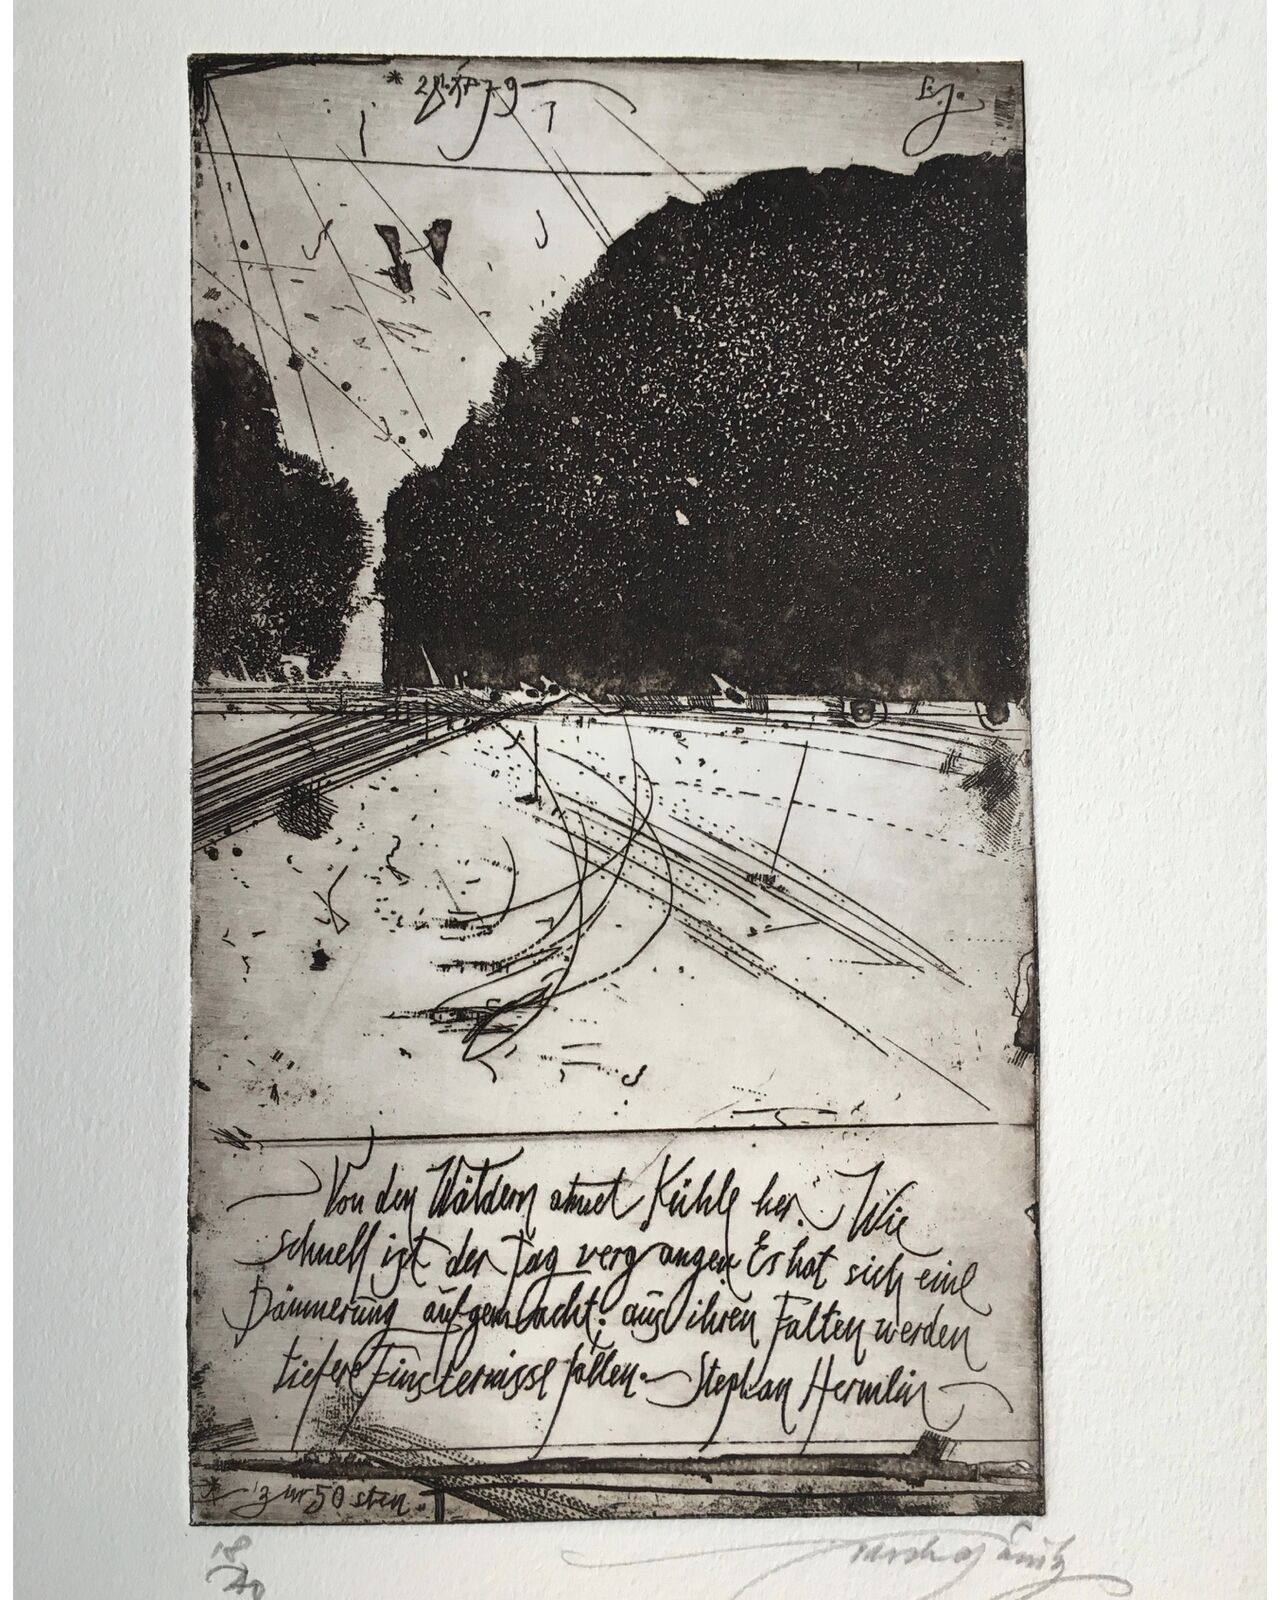 Von den Wäldern atmet Kühle her. Wie
schnell ist der Tag vergangen Es hat sich eine
Dämmerung aufgemacht; aus ihren Falten werden
tiefere Finsternisse fallen. — Stephan Hermlin
* zur 50 sten.
18/40